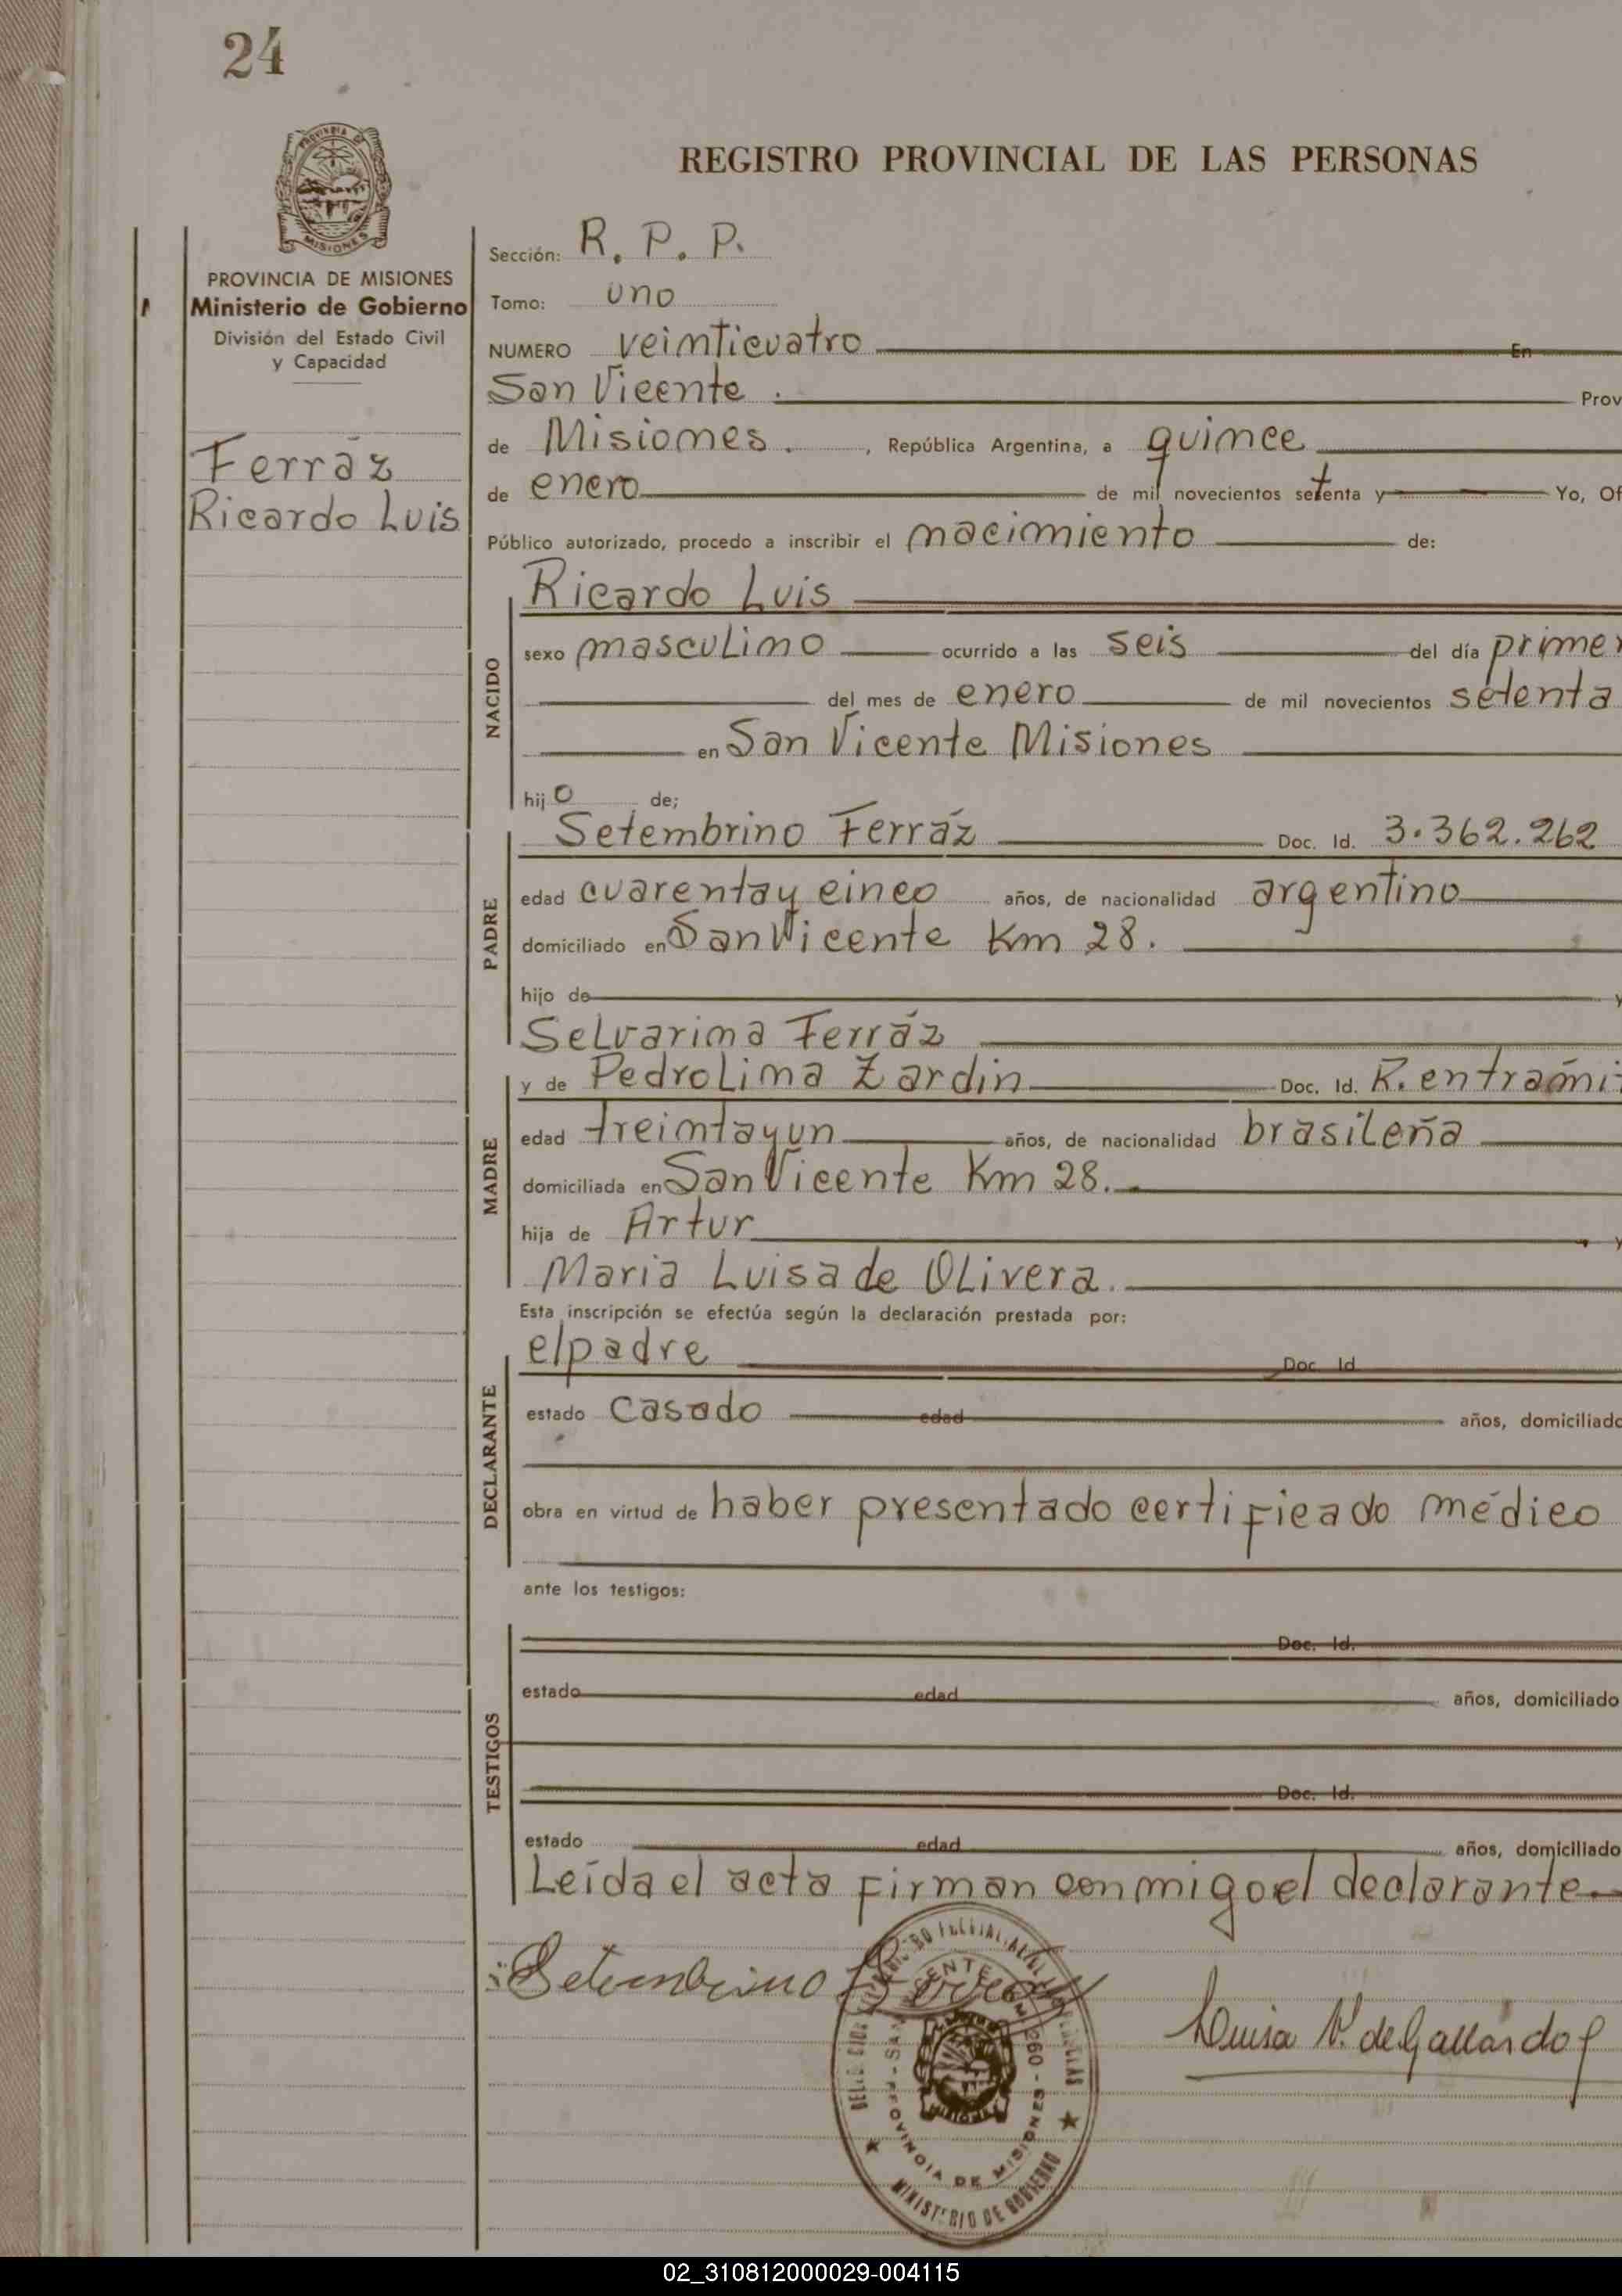 24
REGISTRO PROVINCIAL DE LAS PERSONAS
PROVINCIA DE MISIONES
Ministerio de Gobierno
División del Estado Civil
y Capacidad
Ferráz
Ricardo Luis
Sección: R. P. P.
Tomo: uno
NUMERO veinticuatro En
San Vicente. Prov
de Misiones. , República Argentina, a quince
de enero de mil novecientos setenta y Yo, Of
Público autorizado, procedo a inscribir el nacimiento de:
NACIDO
Ricardo Luis
sexo masculino ocurrido a las seis del día primer
del mes de enero de mil novecientos setenta
en San Vicente Misiones
hijo de;
PADRE
Setembrino Ferráz Doc. Id. 3.362.262
edad cuarentay cinco años, de nacionalidad argentino
domiciliado en San Vicente Km 28.
hijo de y
Selvarina Ferráz
MADRE
y de Pedrolina Zardin Doc. Id. R. entrámi
edad treintayun años, de nacionalidad brasileña
domiciliada en San Vicente Km 28.
hija de Artur y
Maria Luisa de Olivera.
Esta inscripción se efectúa según la declaración prestada por:
DECLARANTE
el padre Doc. Id
estado Casado edad años, domiciliado
obra en virtud de haber presentado certificado médico
ante los testigos:
TESTIGOS
Doc. Id.
estado edad años, domiciliado
Doc. Id.
estado edad años, domiciliado
Leída el acta firman conmigo el declarante
Setembrino
Luisa V. de Gallardo
PROVINCIA DE MISIONES
MINISTERIO DE GOBIERNO
02_310812000029-004115